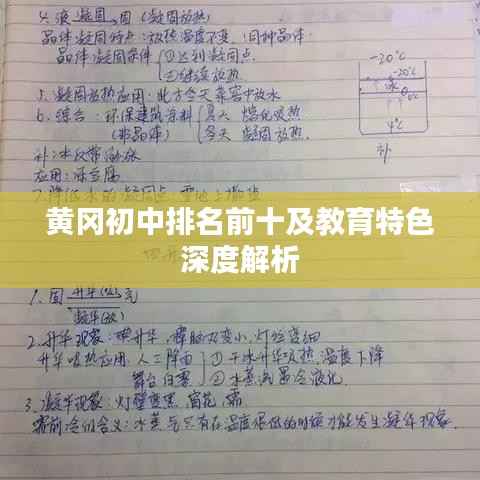 4. 液 凝固 固 (凝固放热)
晶体凝固特点: 放热温度不变, 同种晶体
晶体凝固条件 ①达到凝固点
②继续放热
5. 凝固放热应用: 北方冬天菜窖中放水
6. 综合: 环保建筑涂料 夏天 熔化吸热
(非晶体) 冬天 凝固放热.
-30℃
-20℃
0℃
4℃
补
补: 冰反常膨胀
应用: 冻豆腐
黄冈初中排名前十及教育特色
深度解析
1. 固 升华(吸) 气
凝华(放)
2. 升华现象: 碘升华, 樟脑丸变小, 灯丝变细
升华吸热应用: 人工降雨 ①干冰升华吸热, 温度下降
舞台白雾 ②水蒸气遇冷液化.
3. 凝华现象: 灯壁变黑, 窗花, 霜
霜前冷的含义: 水蒸气只有在温度很低的时候才能发生凝华现象.